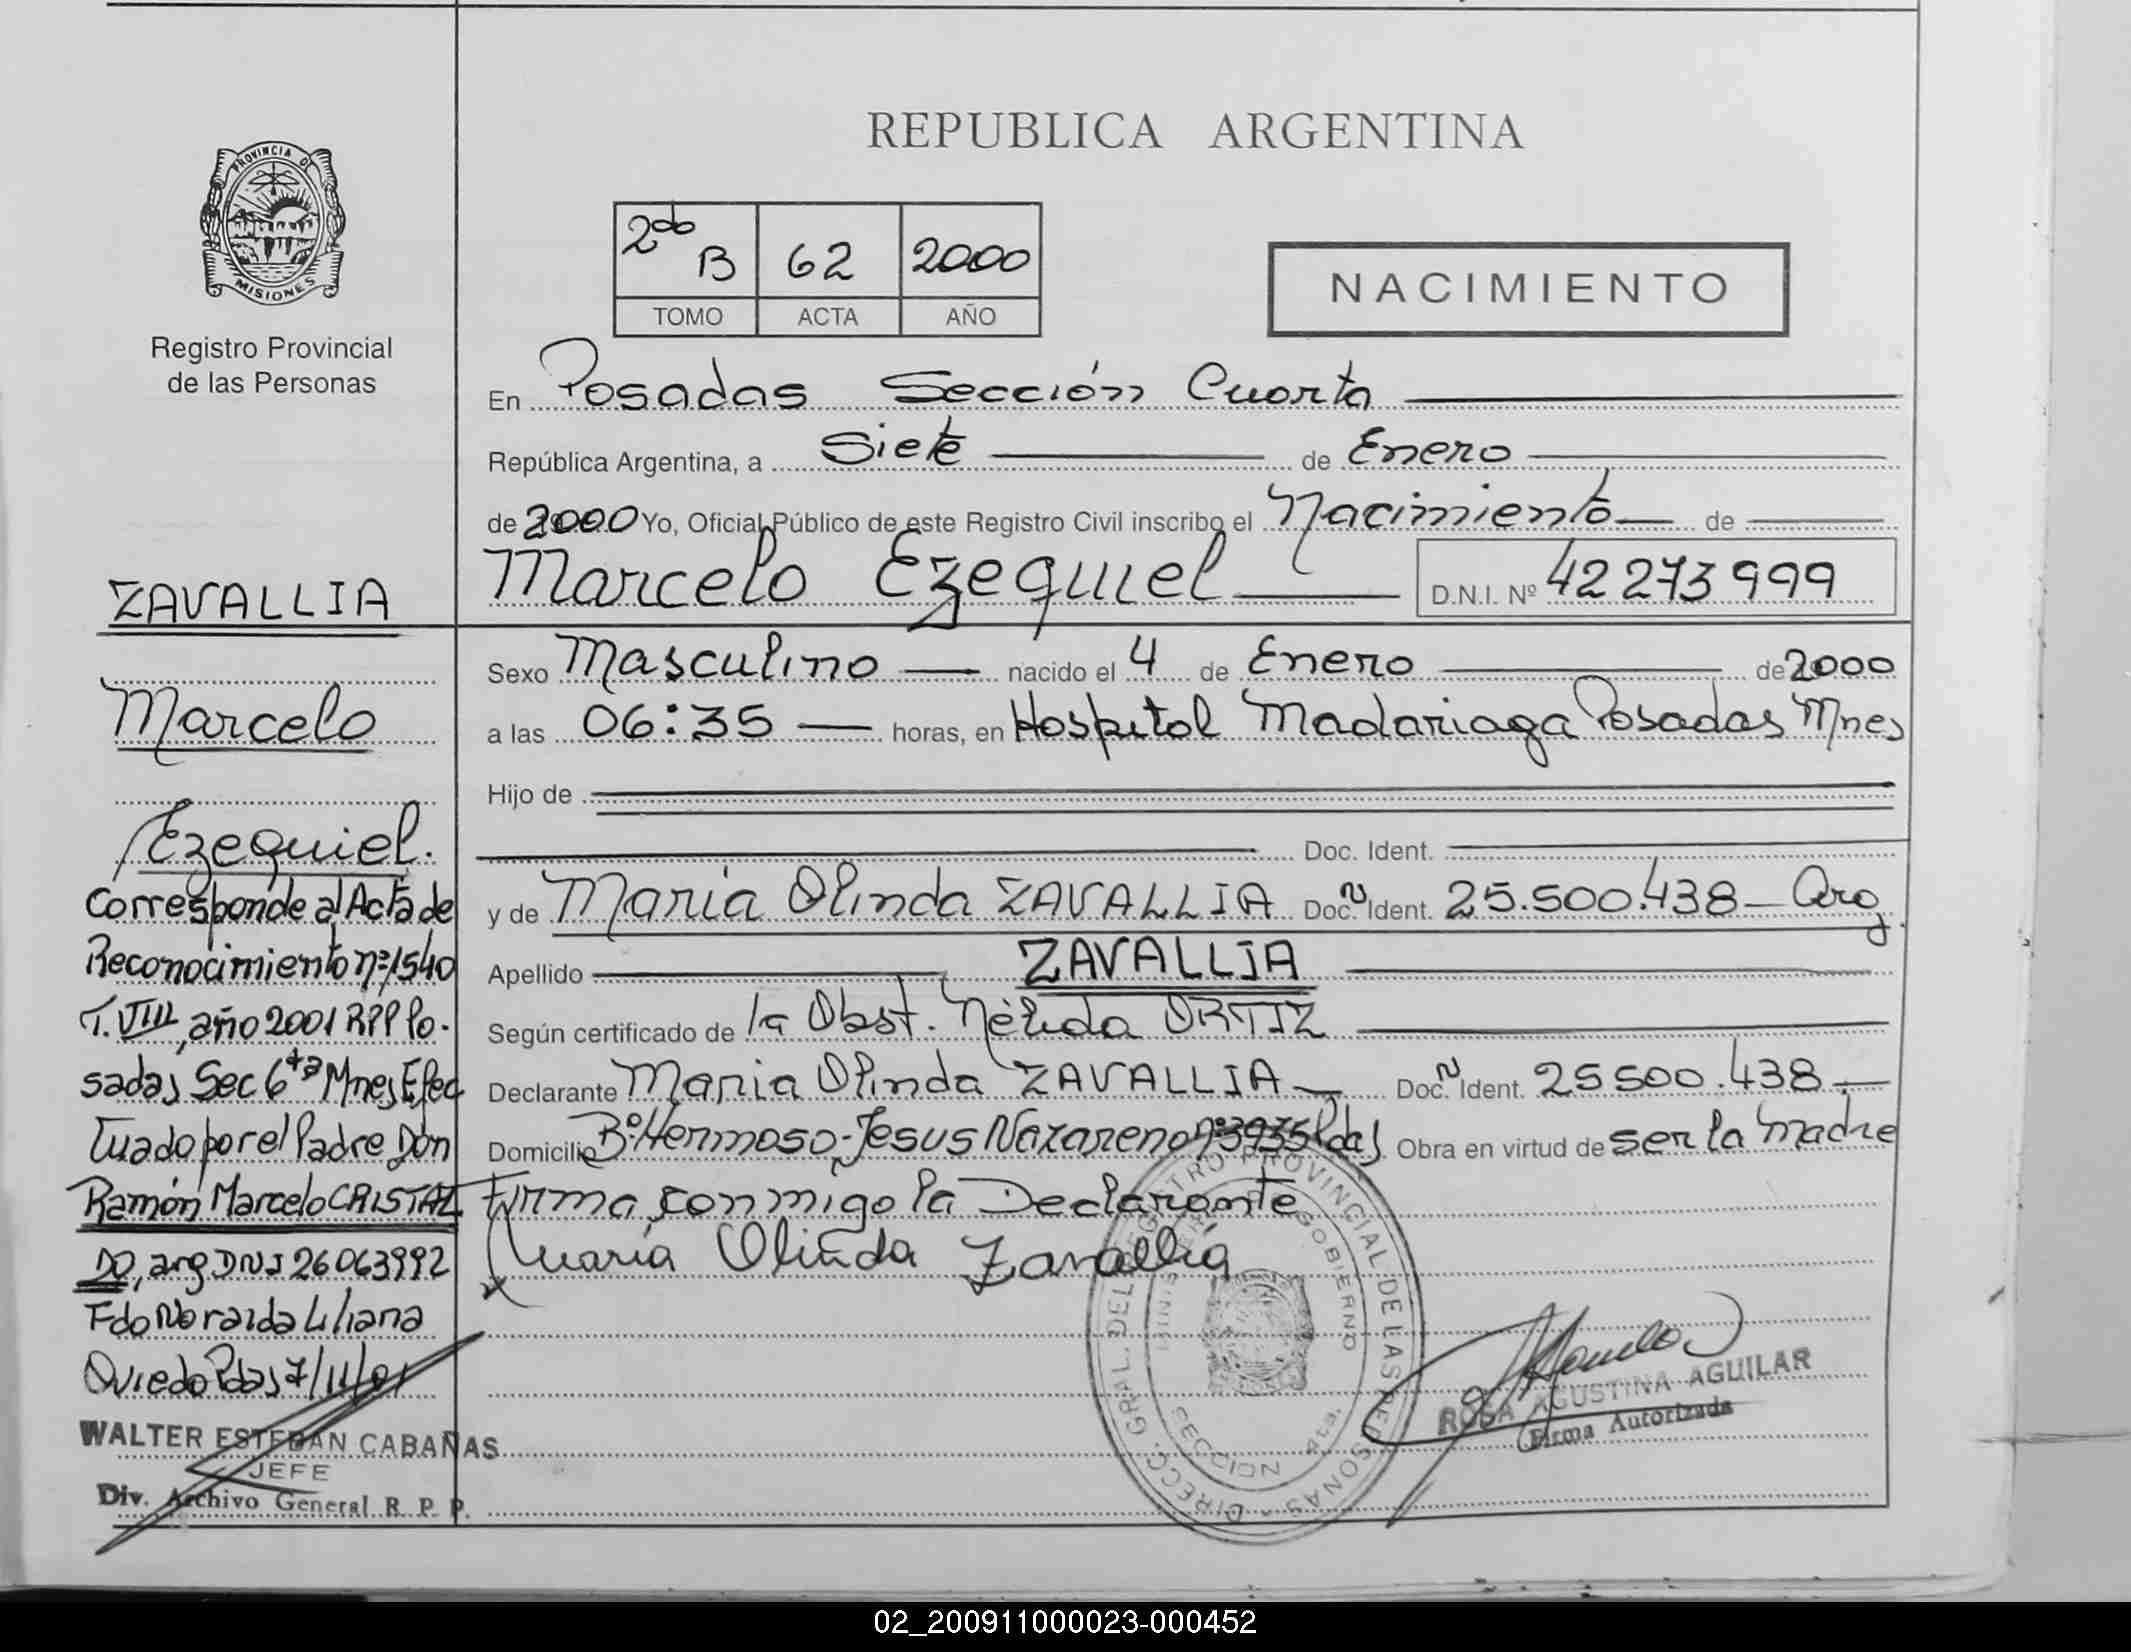 REPUBLICA ARGENTINA
PROVINCIA DE
MISIONES
Registro Provincial
de las Personas
2do B 62 2000
TOMO ACTA AÑO
NACIMIENTO
En Posadas Sección Cuarta
República Argentina, a Siete de Enero
de 2000 Yo, Oficial Público de este Registro Civil inscribo el Nacimiento de
Marcelo Ezequiel D.N.I. Nº 42 273 999
Sexo Masculino nacido el 4 de Enero de 2000
a las 06:35 horas, en Hospital Madariaga Posadas Mnes
Hijo de
Doc. Ident.
y de Maria Olinda ZAVALLIA Doc. N Ident. 25.500.438 - Arg.
Apellido ZAVALLIA
Según certificado de la Obst. Nélida ORTIZ
Declarante Maria Olinda ZAVALLIA Doc. N Ident. 25 500.438.
Domicilio Bº Hermoso - Jesus Nazareno nº 3935 Pdas Obra en virtud de ser la Madre
Firma conmigo la Declarante
x Maria Olinda Zavallia
ZAVALLIA
Marcelo
Ezequiel.
Corresponde al Acta de
Reconocimiento nº 1540
T. VIII, año 2001 RPP Po-
sadas Sec 6ta Mnes Efec
tuado por el Padre Don
Ramón Marcelo CRISTAL
DO, arg DNI 26063992
Fdo Noraida Liliana
Oviedo Pdas 7/11/01
WALTER ESTEBAN CABAÑAS
JEFE
Div. Archivo General R. P. P.
DIRECC. GRAL. DEL REGISTRO PROVINCIAL DE LAS PERSONAS
GOBIERNO
SECCION 4ta.
ROSA AGUSTINA AGUILAR
Firma Autorizada
02_200911000023-000452